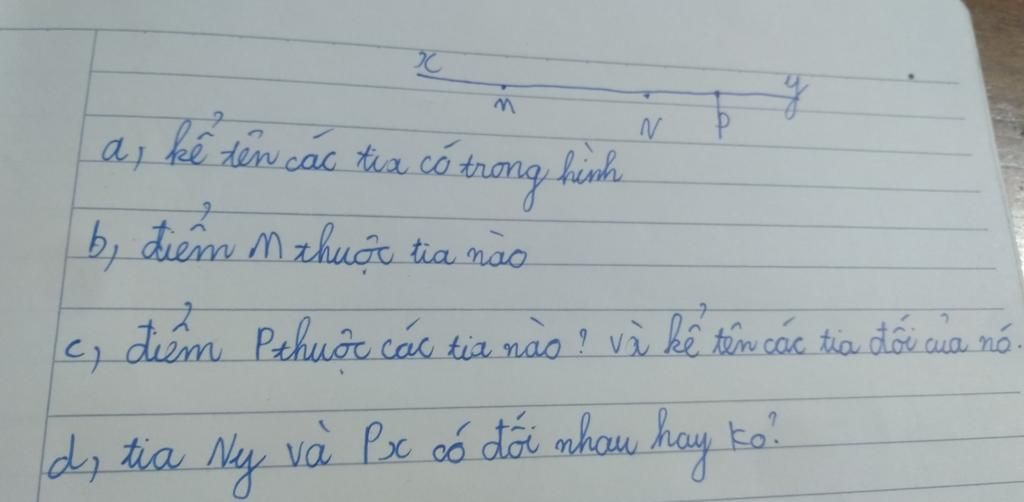 x y
m N P
a, kể tên các tia có trong hình
b, điểm M thuộc tia nào
c, điểm P thuộc các tia nào? và kể tên các tia đối của nó.
d, tia Ny và Px có đối nhau hay ko?